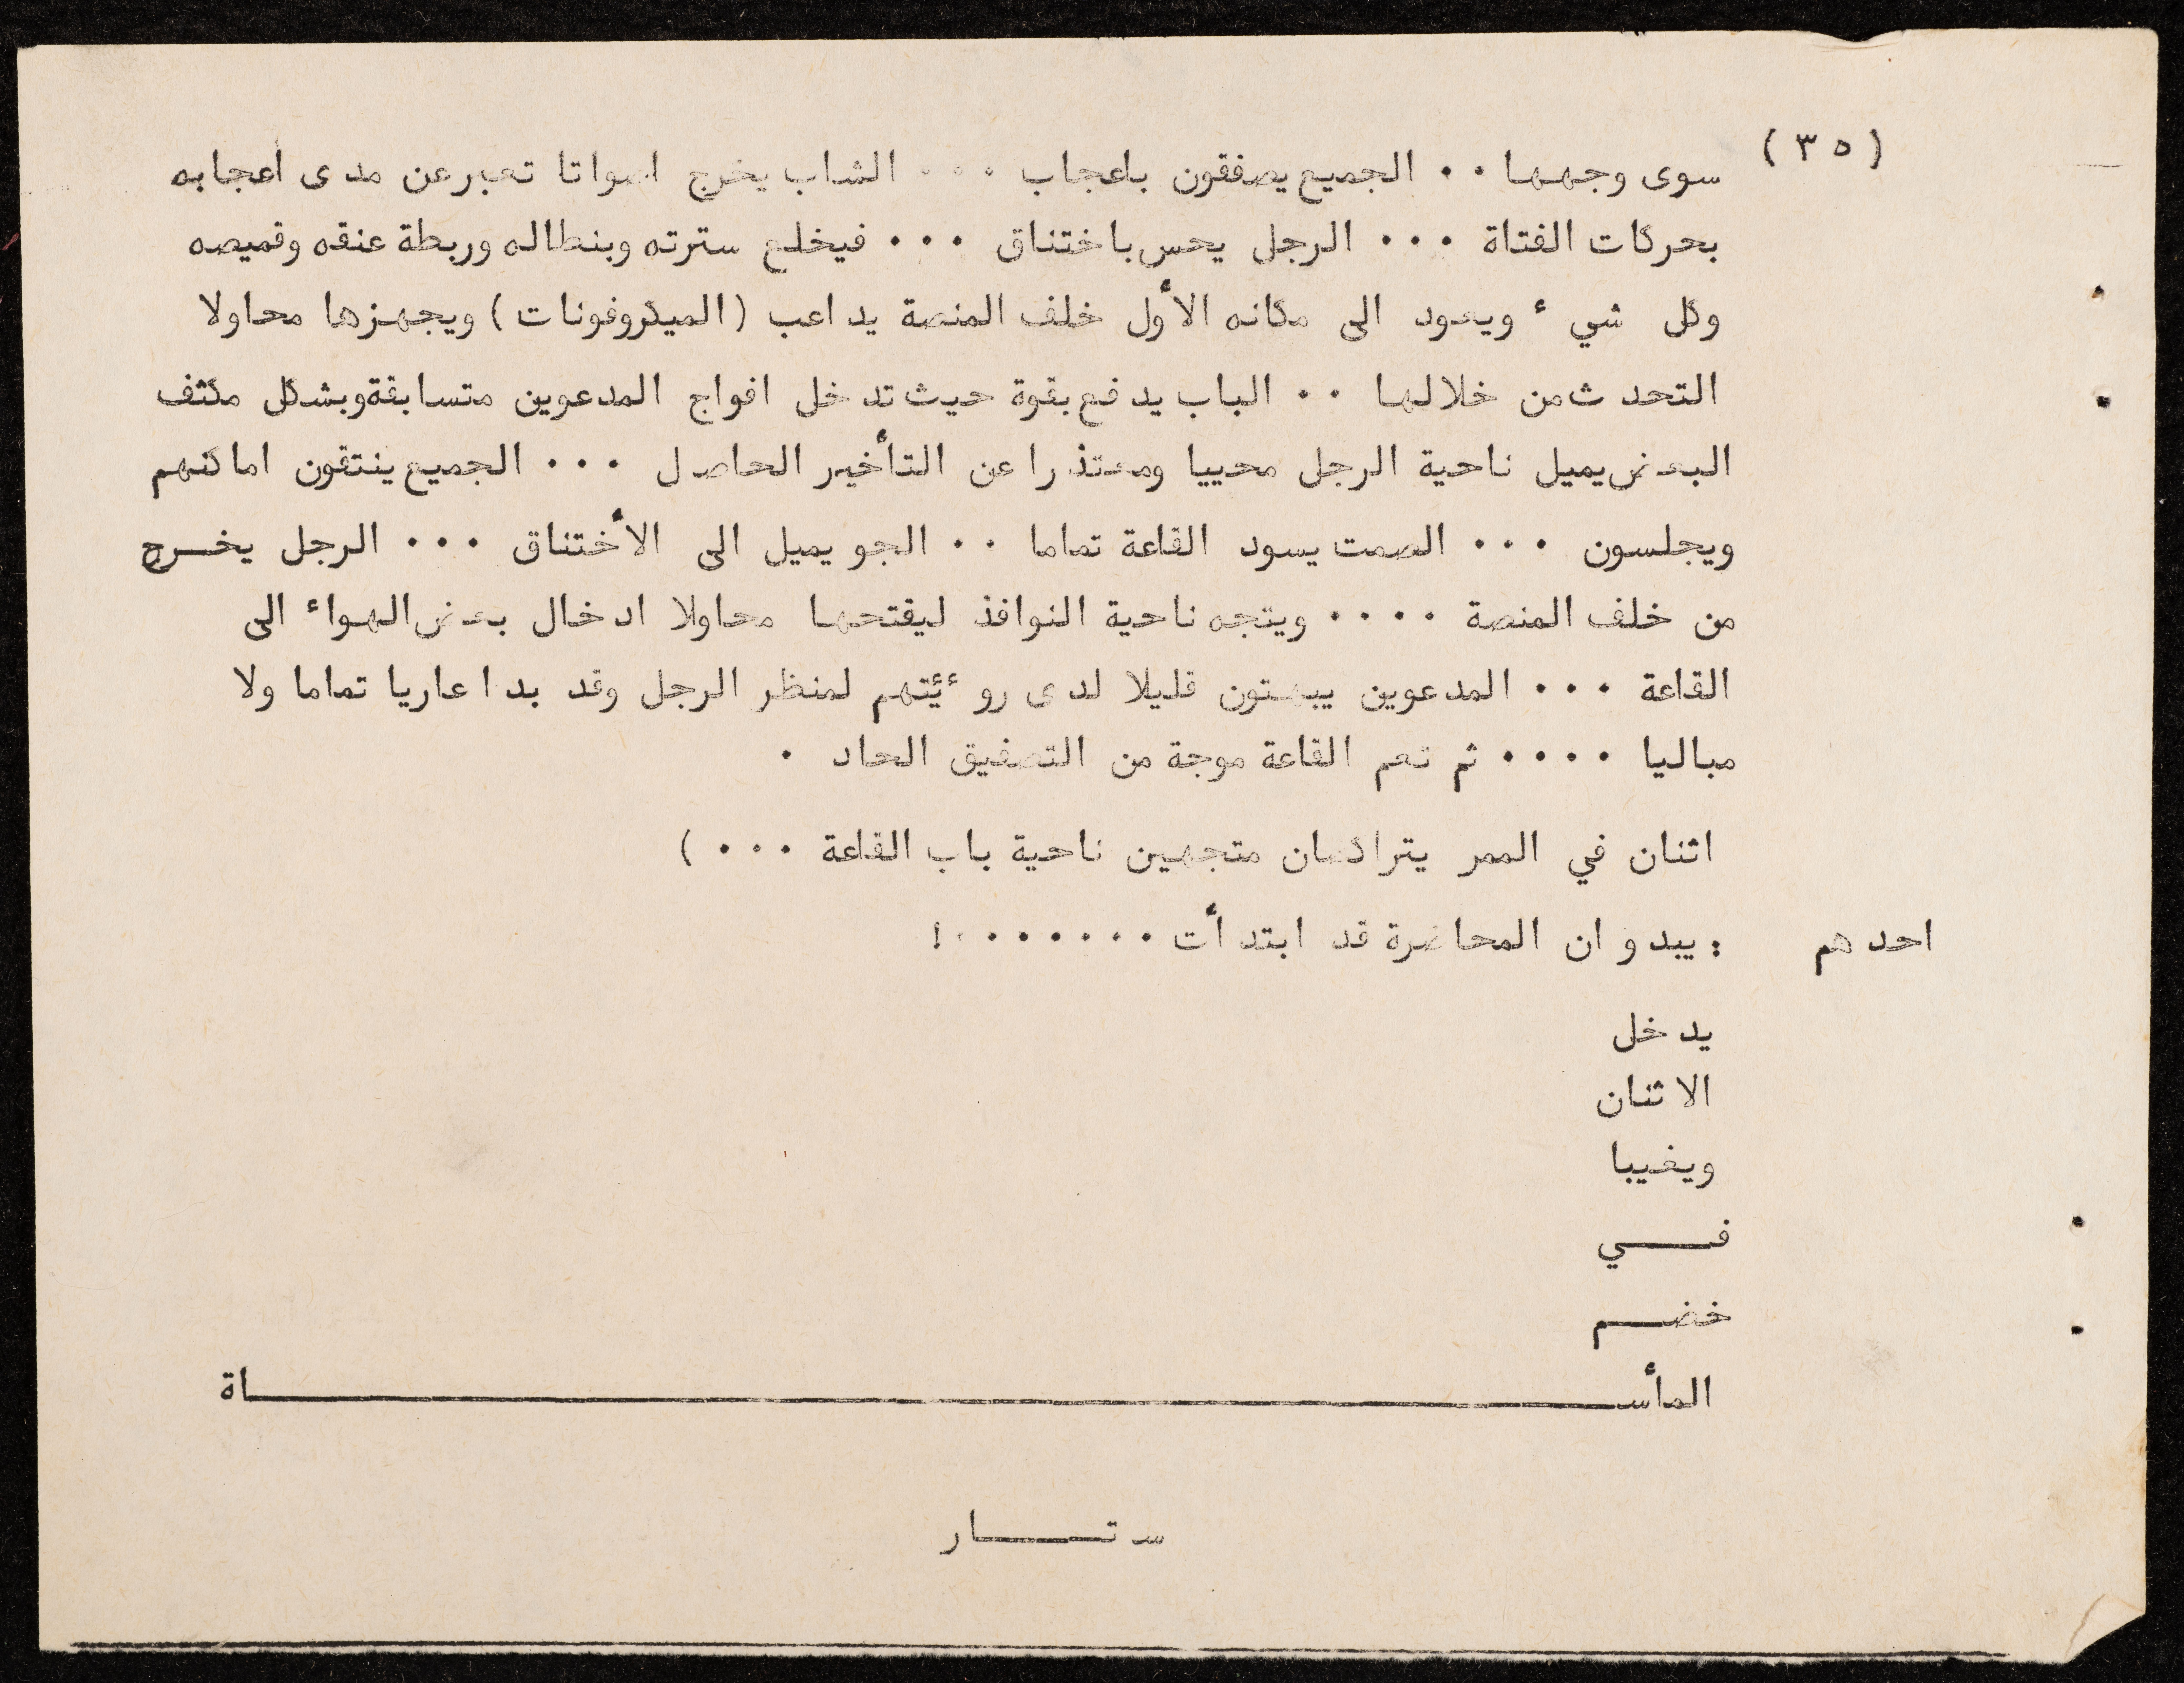 (٣٥)
سوى وجهها ٠٠ الجميع يصفقون باعجاب ٠٠٠ الشاب يخرج اصواتا تعبر عن مدى أعجابه
بحركات الفتاة ٠٠٠ الرجل يحس باختناق ٠٠٠ فيخلع سترته وبنطاله وربطة عنقه وقميصه
وكل شيء ويعود الى مكانه الأول خلف المنصة يداعب (الميكروفونات) ويجهزها محاولا
التحدث من خلالها ٠٠ الباب يدفع بقوة حيث تدخل افواج المدعوين متسابقة وبشكل مكثف
البعض يميل ناحية الرجل محييا ومعتذرا عن التأخير الحاصل ٠٠٠ الجميع ينتقون اماكنهم
ويجلسون ٠٠٠ الصمت يسود القاعة تماما ٠٠ الجو يميل الى الأختناق ٠٠٠ الرجل يخـرج
من خلف المنصة ٠٠٠٠ ويتجه ناحية النوافذ ليفتحها محاولا ادخال بعض الهواء الى
القاعة ٠٠٠ المدعوين يبهتون قليلا لدى روءيئتهم لمنظر الرجل وقد بدا عاريا تماما ولا
مباليا ٠٠٠٠ ثم تعم القاعة موجة من التصفيق الحاد ٠
اثنان في الممر يتراكضان متجهين ناحية باب القاعة ٠٠٠ )
احدهم : يبدو ان المحاضرة قد ابتدأت ٠٠٠٠٠٠٠٠!
يدخل
الاثنان
ويغيبا
فـــي
خضــم
المأســـــــــــــــــــــــــــــاة
ستــــار